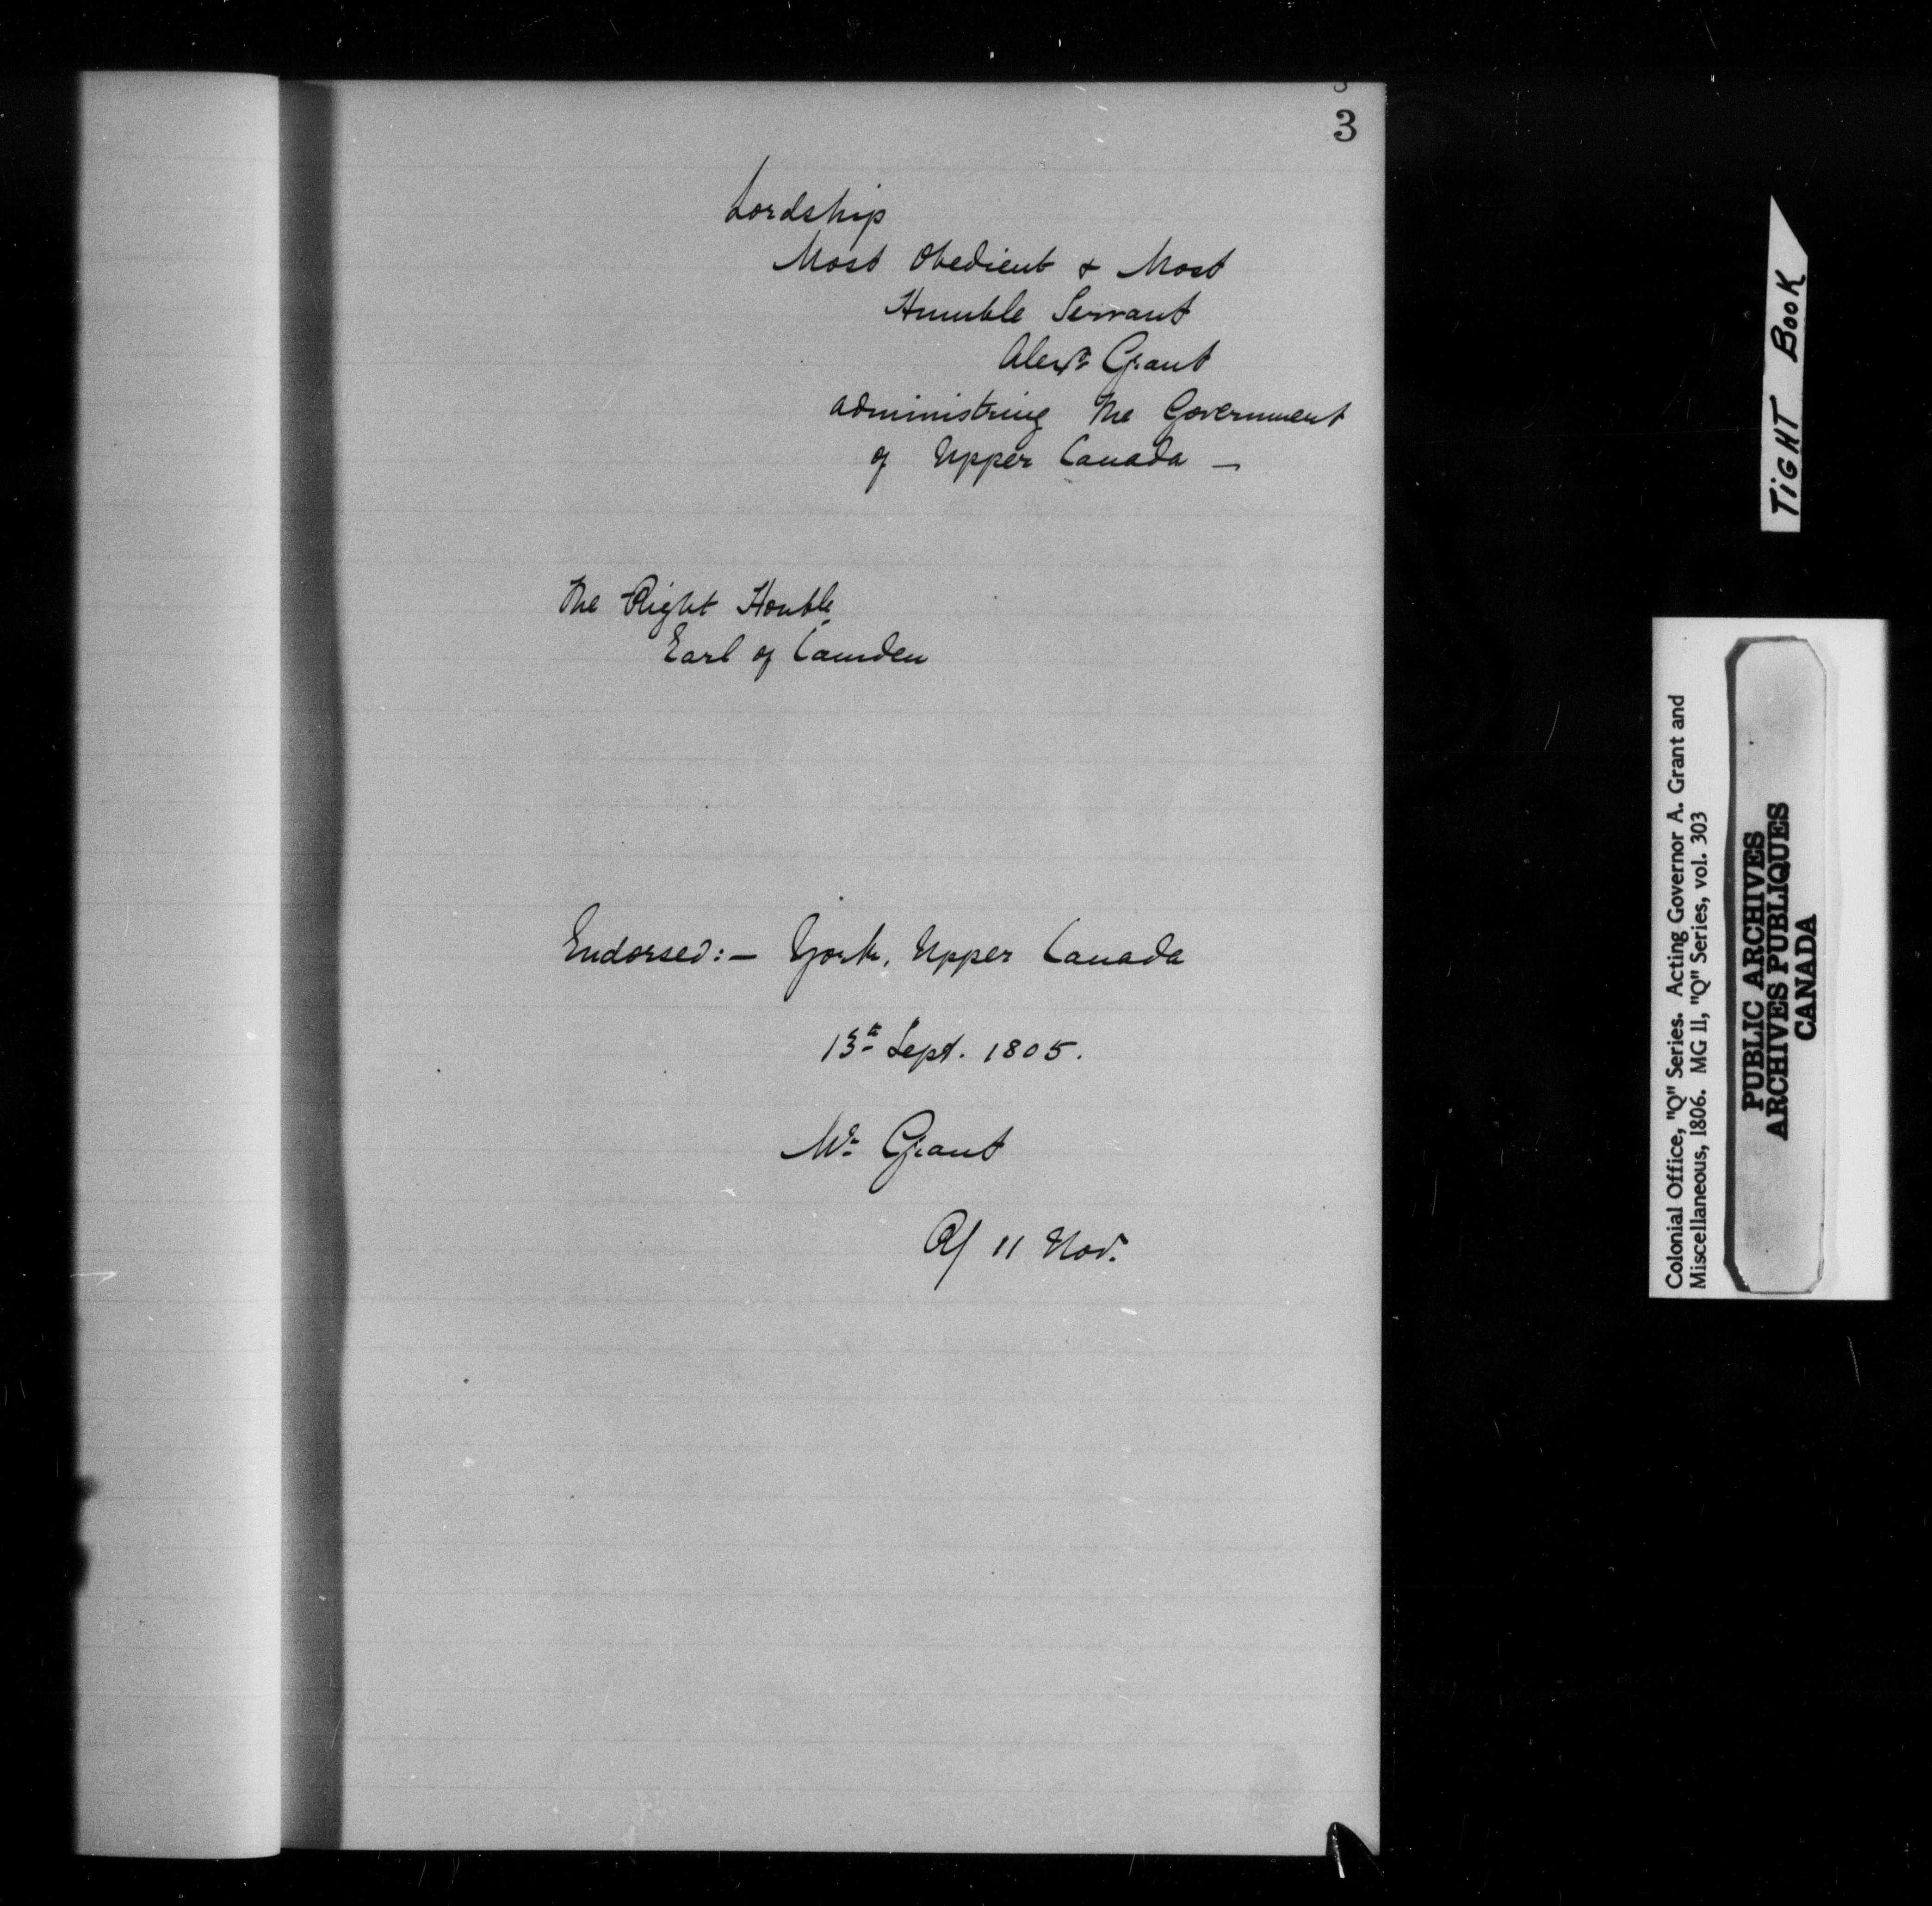 3
Lordship
Most Obedient & Most
Humble Servant
Alexr Grant
administring the Government
of Upper Canada —
The Right Honble
Earl of Camden
Endorsed:— York, Upper Canada
13th Sept. 1805.
Mr Grant
R/ 11 Nov.
TIGHT BOOK
Colonial Office, "Q" Series. Acting Governor A. Grant and
Miscellaneous, 1806. MG 11, "Q" Series, vol. 303
PUBLIC ARCHIVES
ARCHIVES PUBLIQUES
CANADA